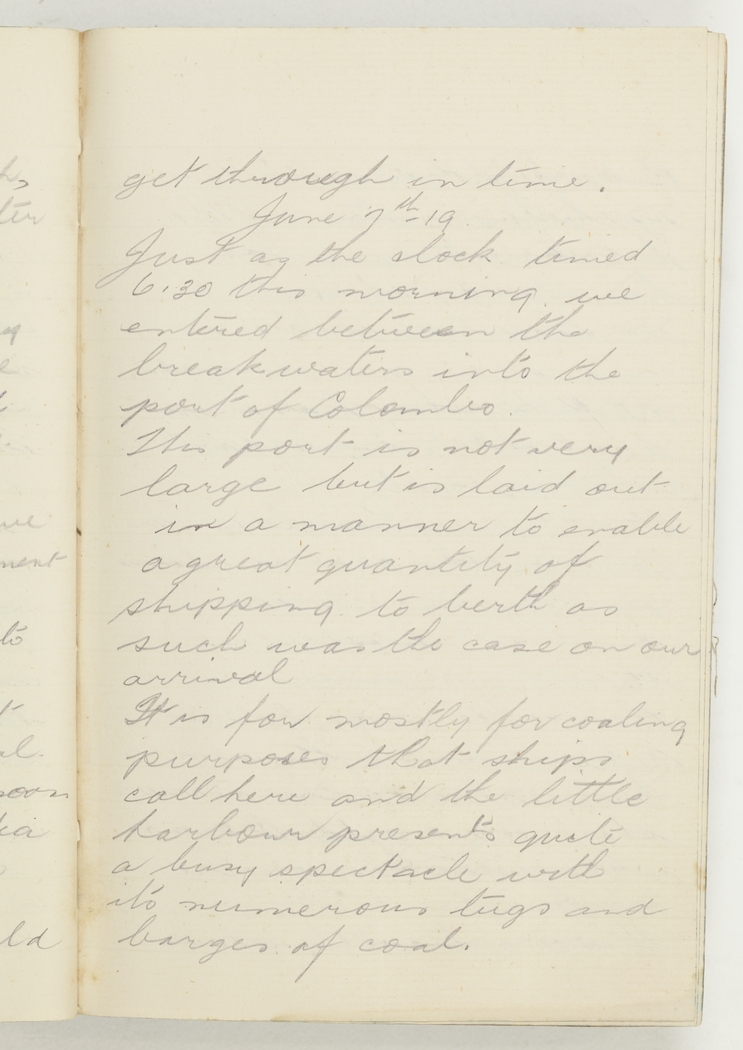 get through in time.
June 7th-19.
Just as the slock timed
6.30 this morning we
entered between the
breakwaters into the
port of Colombo.
This port is not very
large but is laid out
in a manner to enable
a great quantity of
shipping to berth as
such was the case on our
arrival
It is for mostly for coaling
purposes that ships
call here and the little
harbour presents quite
a busy spectacle with
its numerous tugs and
barges of coal.